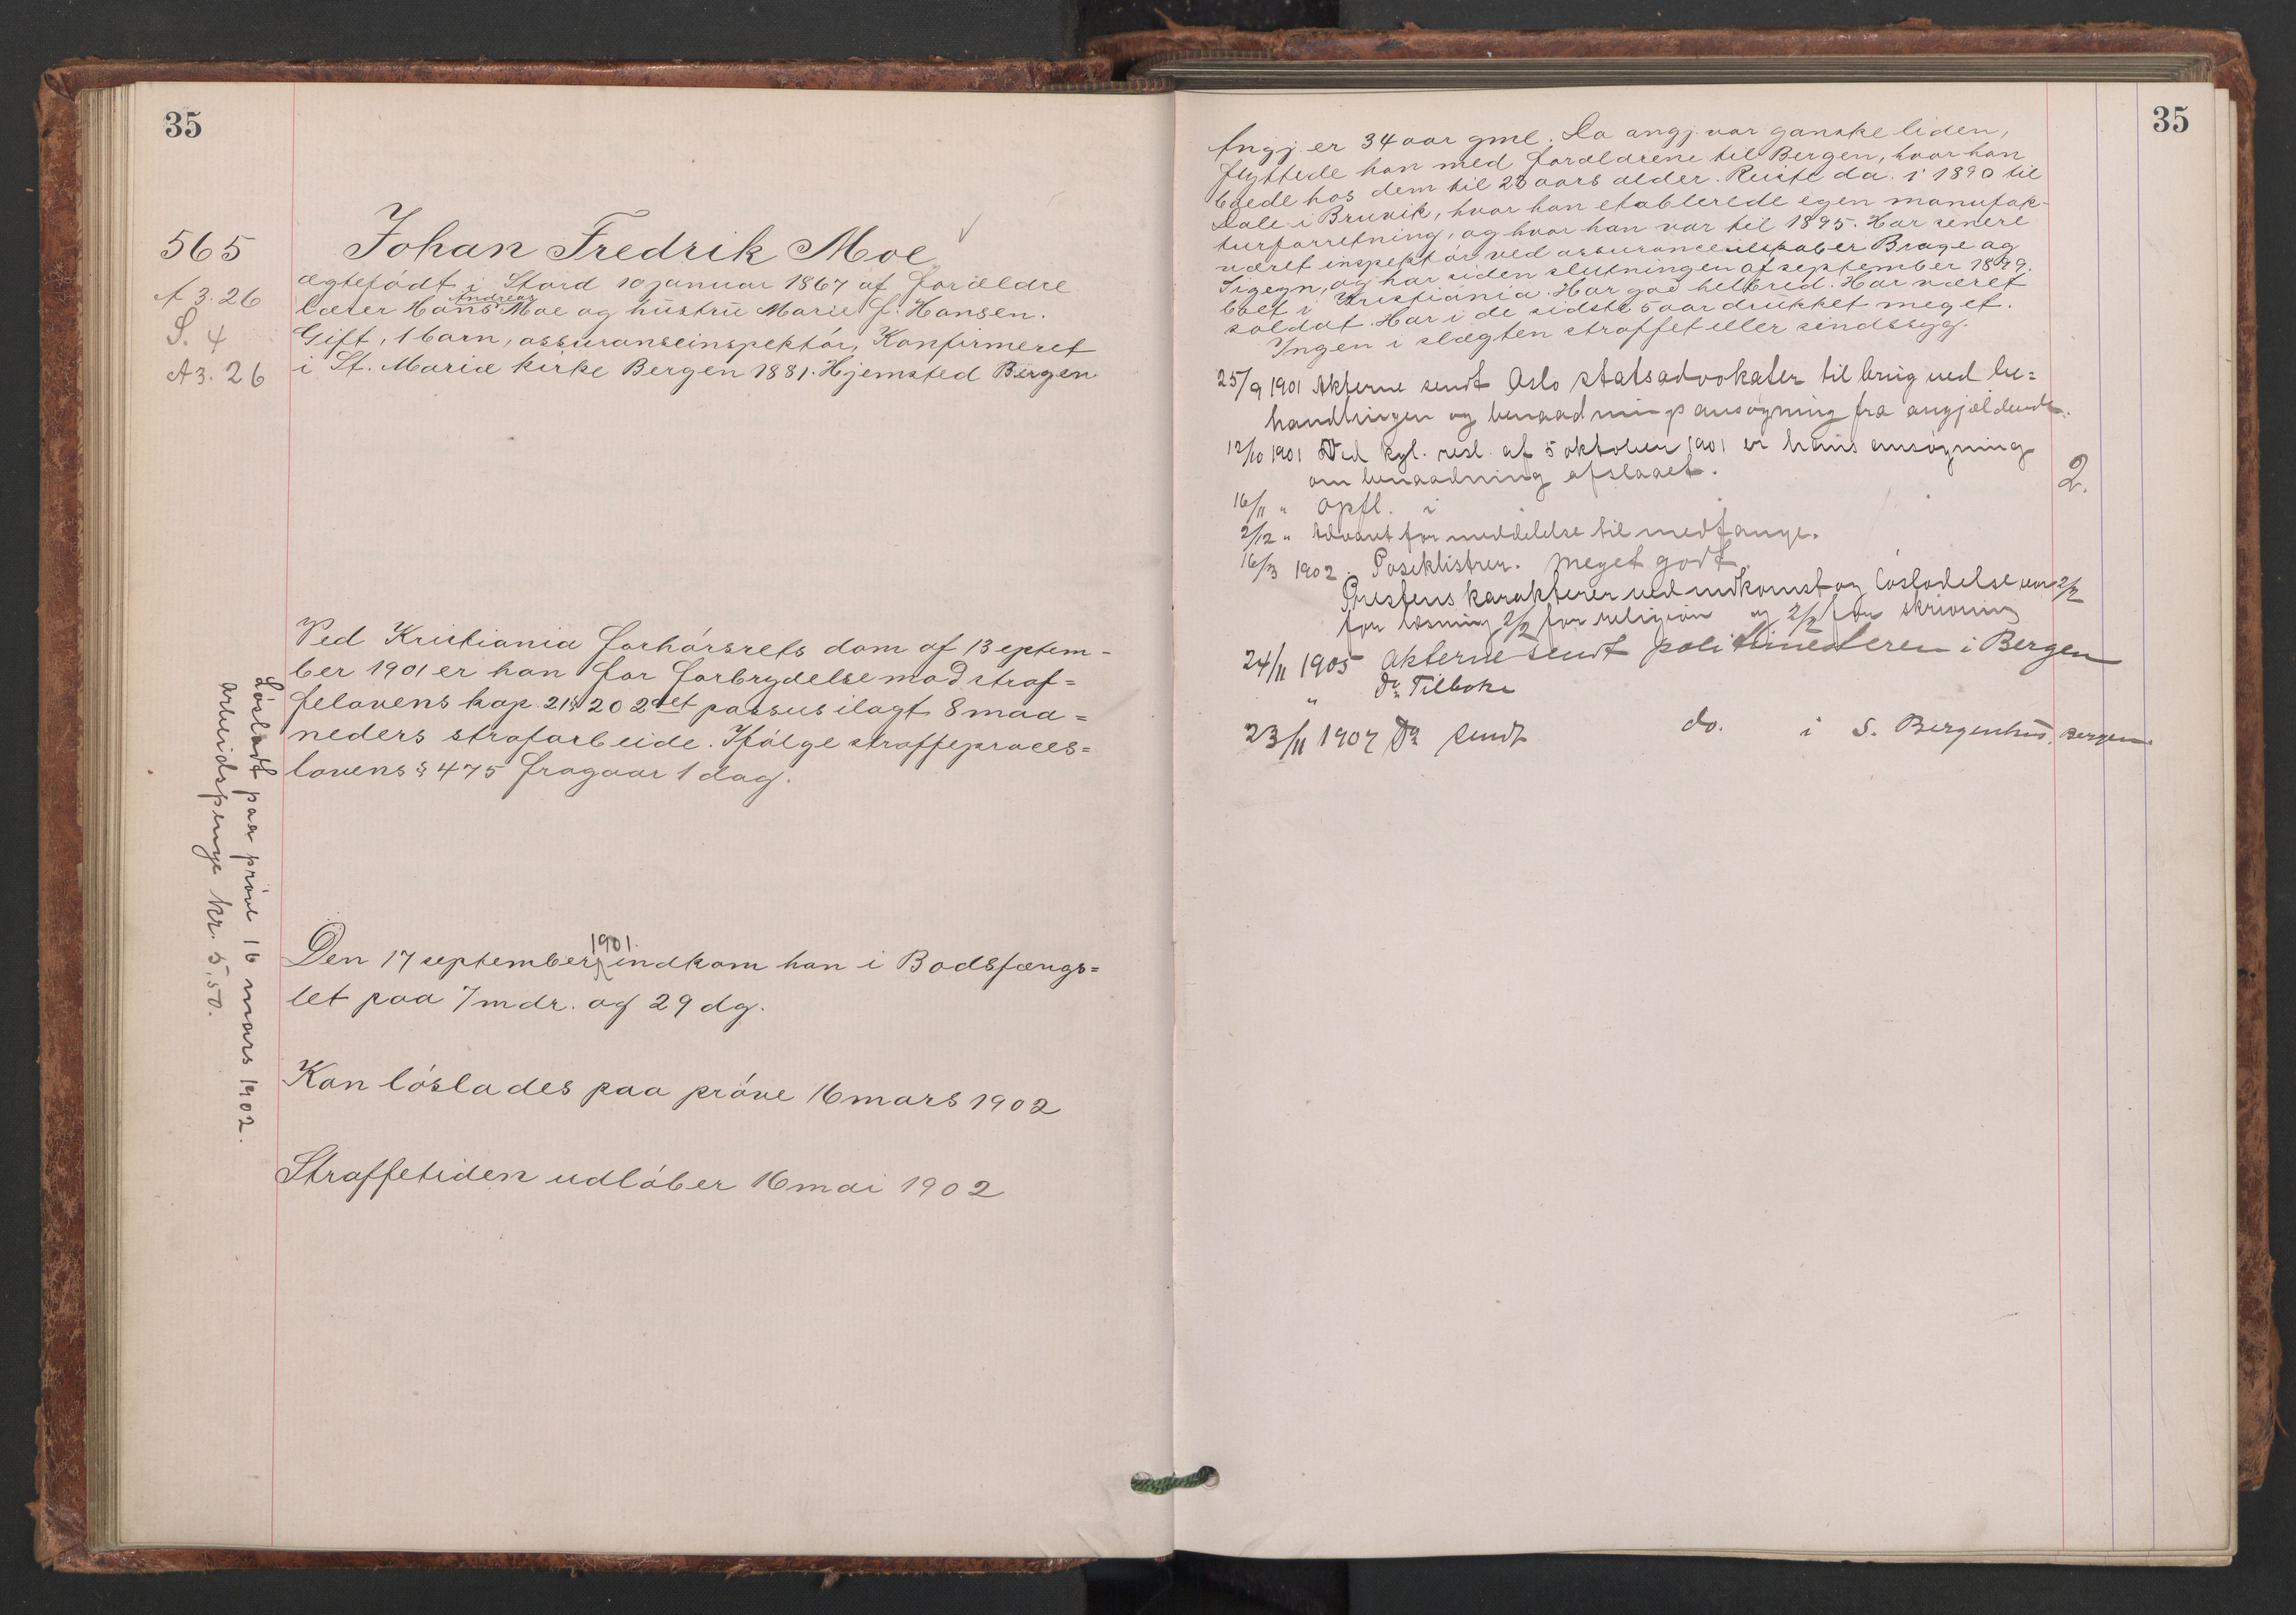 35
565
A 3. 26
S. 4
A 3. 26
Johan Fredrik Moe
ægtefødt i Stord 10 januar 1867 af forældre
lærer Hans Andreas Moe og hustru Marie f. Hansen.
Gift, 1 barn, assuranseinspektör, Konfirmeret
i St. Mariæ kirke Bergen 1881. Hjemsted Bergen
Ved Kristiania forhörsrets dom af 13 septem-
ber 1901 er han for forbrydelse mod straf=
felovens kap. 21 § 20 2det passus ilagt 8 maa=
neders strafarbeide. Ifölge straffeproces=
lovens § 475 fragaar 1 dag.
Den 17 september 1901 indkom han i Bodsfængs=
let paa 7 mdr. og 29 dg.
Kan löslades paa pröve 16 mars 1902
Straffetiden udlöber 16 mai 1902
Lösladt paa pröve 16 mars 1902.
arbeidspenge kr. 5,50.
35
Angj. er 34 aar gml. Da angj. var ganske liden,
flyttede han med forældrene til Bergen, hvor han
boede hos dem til 23 aars alder. Reiste da i 1890 til
Dale i Bruvik, hvor han etablerede egen manufak-
turforretning, og hvor han var til 1895. Har senere
været inspektör ved assuranceselskaber Brage og
Sigyn, og har siden slutningen af september 1899
boet i Kristiania. Har god helbred. Har været
soldat. Har i de sidste 5 aar drukket meget.
Ingen i slægten straffet eller sindssyg.
25/9 1901 Akterne sendt Oslo statsadvokater til brug ved be=
handlingen og benaadningsansøgning fra angjældende.
12/10 1901 Ved kgl. resl. af 5 oktober 1901 er hans ansøgning
om benaadning afslaaet.
2.
16/11 " Opfl. i
2/12 " Advaret for meddelelse til medfange.
16/3 1902. Poseklistrer. Meget godt.
Prestens karakterer ved indkomst og løsladelse var 2/2
for læsning, 2/2 for religion og 2/2 for skrivning
24/11 1905 Akterne sendt politimesteren i Bergen
" Do Tilbake
23/11 1907 Do sendt do. i S. Bergenhus, Bergen.